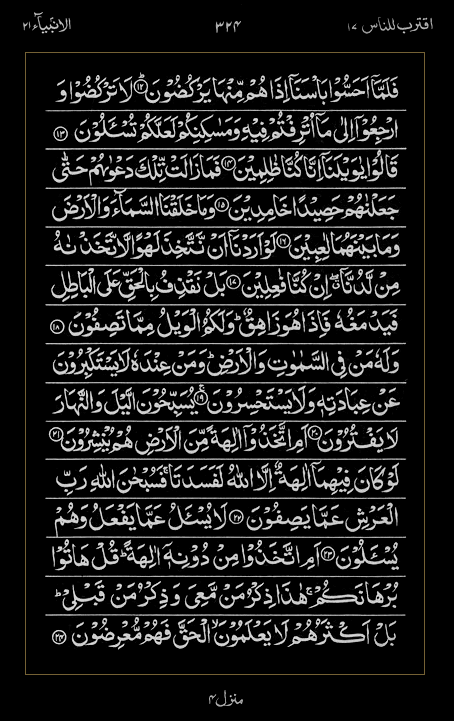 اقترب للناس ١٧ ٣٢٤ الانبیآء ٢١
فَلَمَّاۤ اَحَسُّوْا بَاْسَنَاۤ اِذَا هُمْ مِّنْهَا یَرْكُضُوْنَؕ۝۱۲ لَا تَرْكُضُوْا وَ
ارْجِعُوْۤا اِلٰى مَاۤ اُتْرِفْتُمْ فِیْهِ وَ مَسٰكِنِكُمْ لَعَلَّكُمْ تُسْــٴَـلُوْنَ۝۱۳
قَالُوْا یٰوَیْلَنَاۤ اِنَّا كُنَّا ظٰلِمِیْنَ۝۱۴ فَمَا زَالَتْ تِّلْكَ دَعْوٰىهُمْ حَتّٰى
جَعَلْنٰهُمْ حَصِیْدًا خٰمِدِیْنَ۝۱۵ وَ مَا خَلَقْنَا السَّمَآءَ وَ الْاَرْضَ
وَ مَا بَیْنَهُمَا لٰعِبِیْنَ۝۱۶ لَوْ اَرَدْنَاۤ اَنْ نَّتَّخِذَ لَهْوًا لَّاتَّخَذْنٰهُ
مِنْ لَّدُنَّاۤ ۖۗ اِنْ كُنَّا فٰعِلِیْنَ۝۱۷ بَلْ نَقْذِفُ بِالْحَقِّ عَلَى الْبَاطِلِ
فَیَدْمَغُهٗ فَاِذَا هُوَ زَاهِقٌؕ وَ لَكُمُ الْوَیْلُ مِمَّا تَصِفُوْنَ۝۱۸
وَ لَهٗ مَنْ فِی السَّمٰوٰتِ وَ الْاَرْضِؕ وَ مَنْ عِنْدَهٗ لَا یَسْتَكْبِرُوْنَ
عَنْ عِبَادَتِهٖ وَ لَا یَسْتَحْسِرُوْنَۚ۝۱۹ یُسَبِّحُوْنَ الَّیْلَ وَ النَّهَارَ
لَا یَفْتُرُوْنَ۝۲۰ اَمِ اتَّخَذُوْۤا اٰلِهَةً مِّنَ الْاَرْضِ هُمْ یُنْشِرُوْنَ۝۲۱
لَوْ كَانَ فِیْهِمَاۤ اٰلِهَةٌ اِلَّا اللّٰهُ لَفَسَدَتَاۚ فَسُبْحٰنَ اللّٰهِ رَبِّ
الْعَرْشِ عَمَّا یَصِفُوْنَ۝۲۲ لَا یُسْــٴَـلُ عَمَّا یَفْعَلُ وَ هُمْ
یُسْــٴَـلُوْنَ۝۲۳ اَمِ اتَّخَذُوْا مِنْ دُوْنِهٖۤ اٰلِهَةًؕ قُلْ هَاتُوْا
بُرْهَانَكُمْۚ هٰذَا ذِكْرُ مَنْ مَّعِیَ وَ ذِكْرُ مَنْ قَبْلِیْؕ
بَلْ اَكْثَرُهُمْ لَا یَعْلَمُوْنَۙ الْحَقَّ فَهُمْ مُّعْرِضُوْنَ۝۲۴
منزل ۴